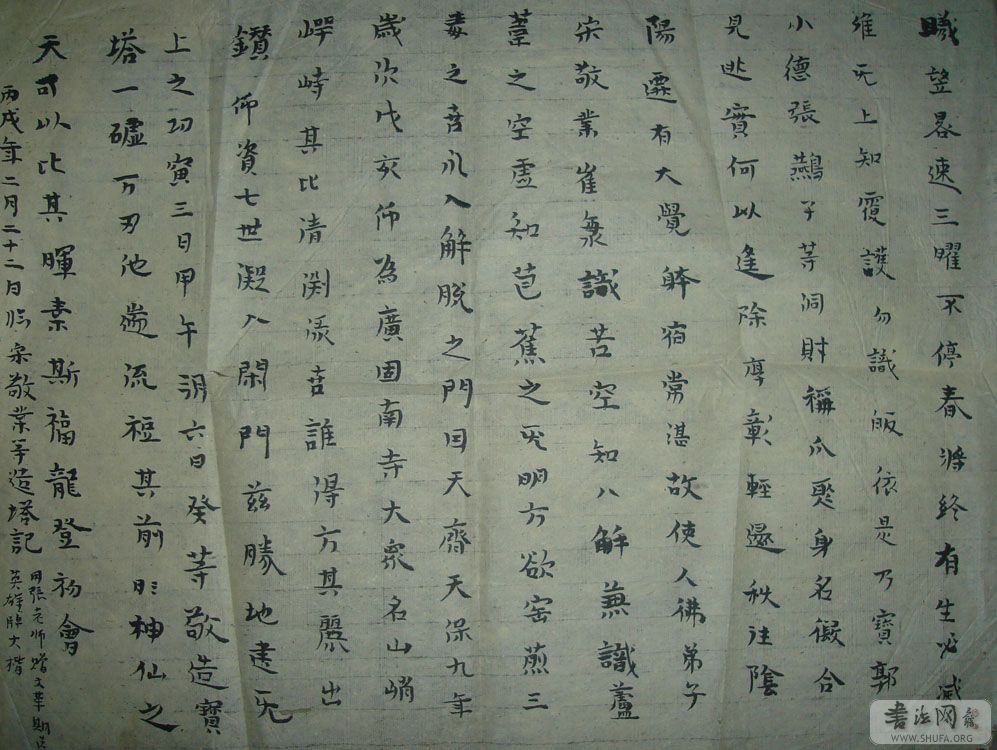 曦望晷速三曜不停春滌終有生必滅
維旡上知覆護勿識皈依是乃寶郭
小德張鷰子等洞財稱爪聚身名儼合
見此實何以逢除辱彰輕還秋往陰
陽遷有大覺躰宿常湛故使人佛弟子
宋敬業崔衆識苦空知八解兼識蘆
葦之空虛知芭蕉之旡明方欲窑煎三
毒之 永入解脫之門因天齊天保九年
歲次戊 仰為廣固南寺大衆名山峭
崿峙其北清渕 誰得方其麗出
鑚仰資七世凝入閑門茲勝地建旡
上之功寅三日甲午 六日癸等敬造寶
塔一 万刃池 流 其前 神仙之
天可以比其暉素斯福龍登初會
丙戌年二月二十二日臨宋敬業等造塔記
用張老師贈文華
英雄牌大楷
书法网
WWW.SHUFA.ORG